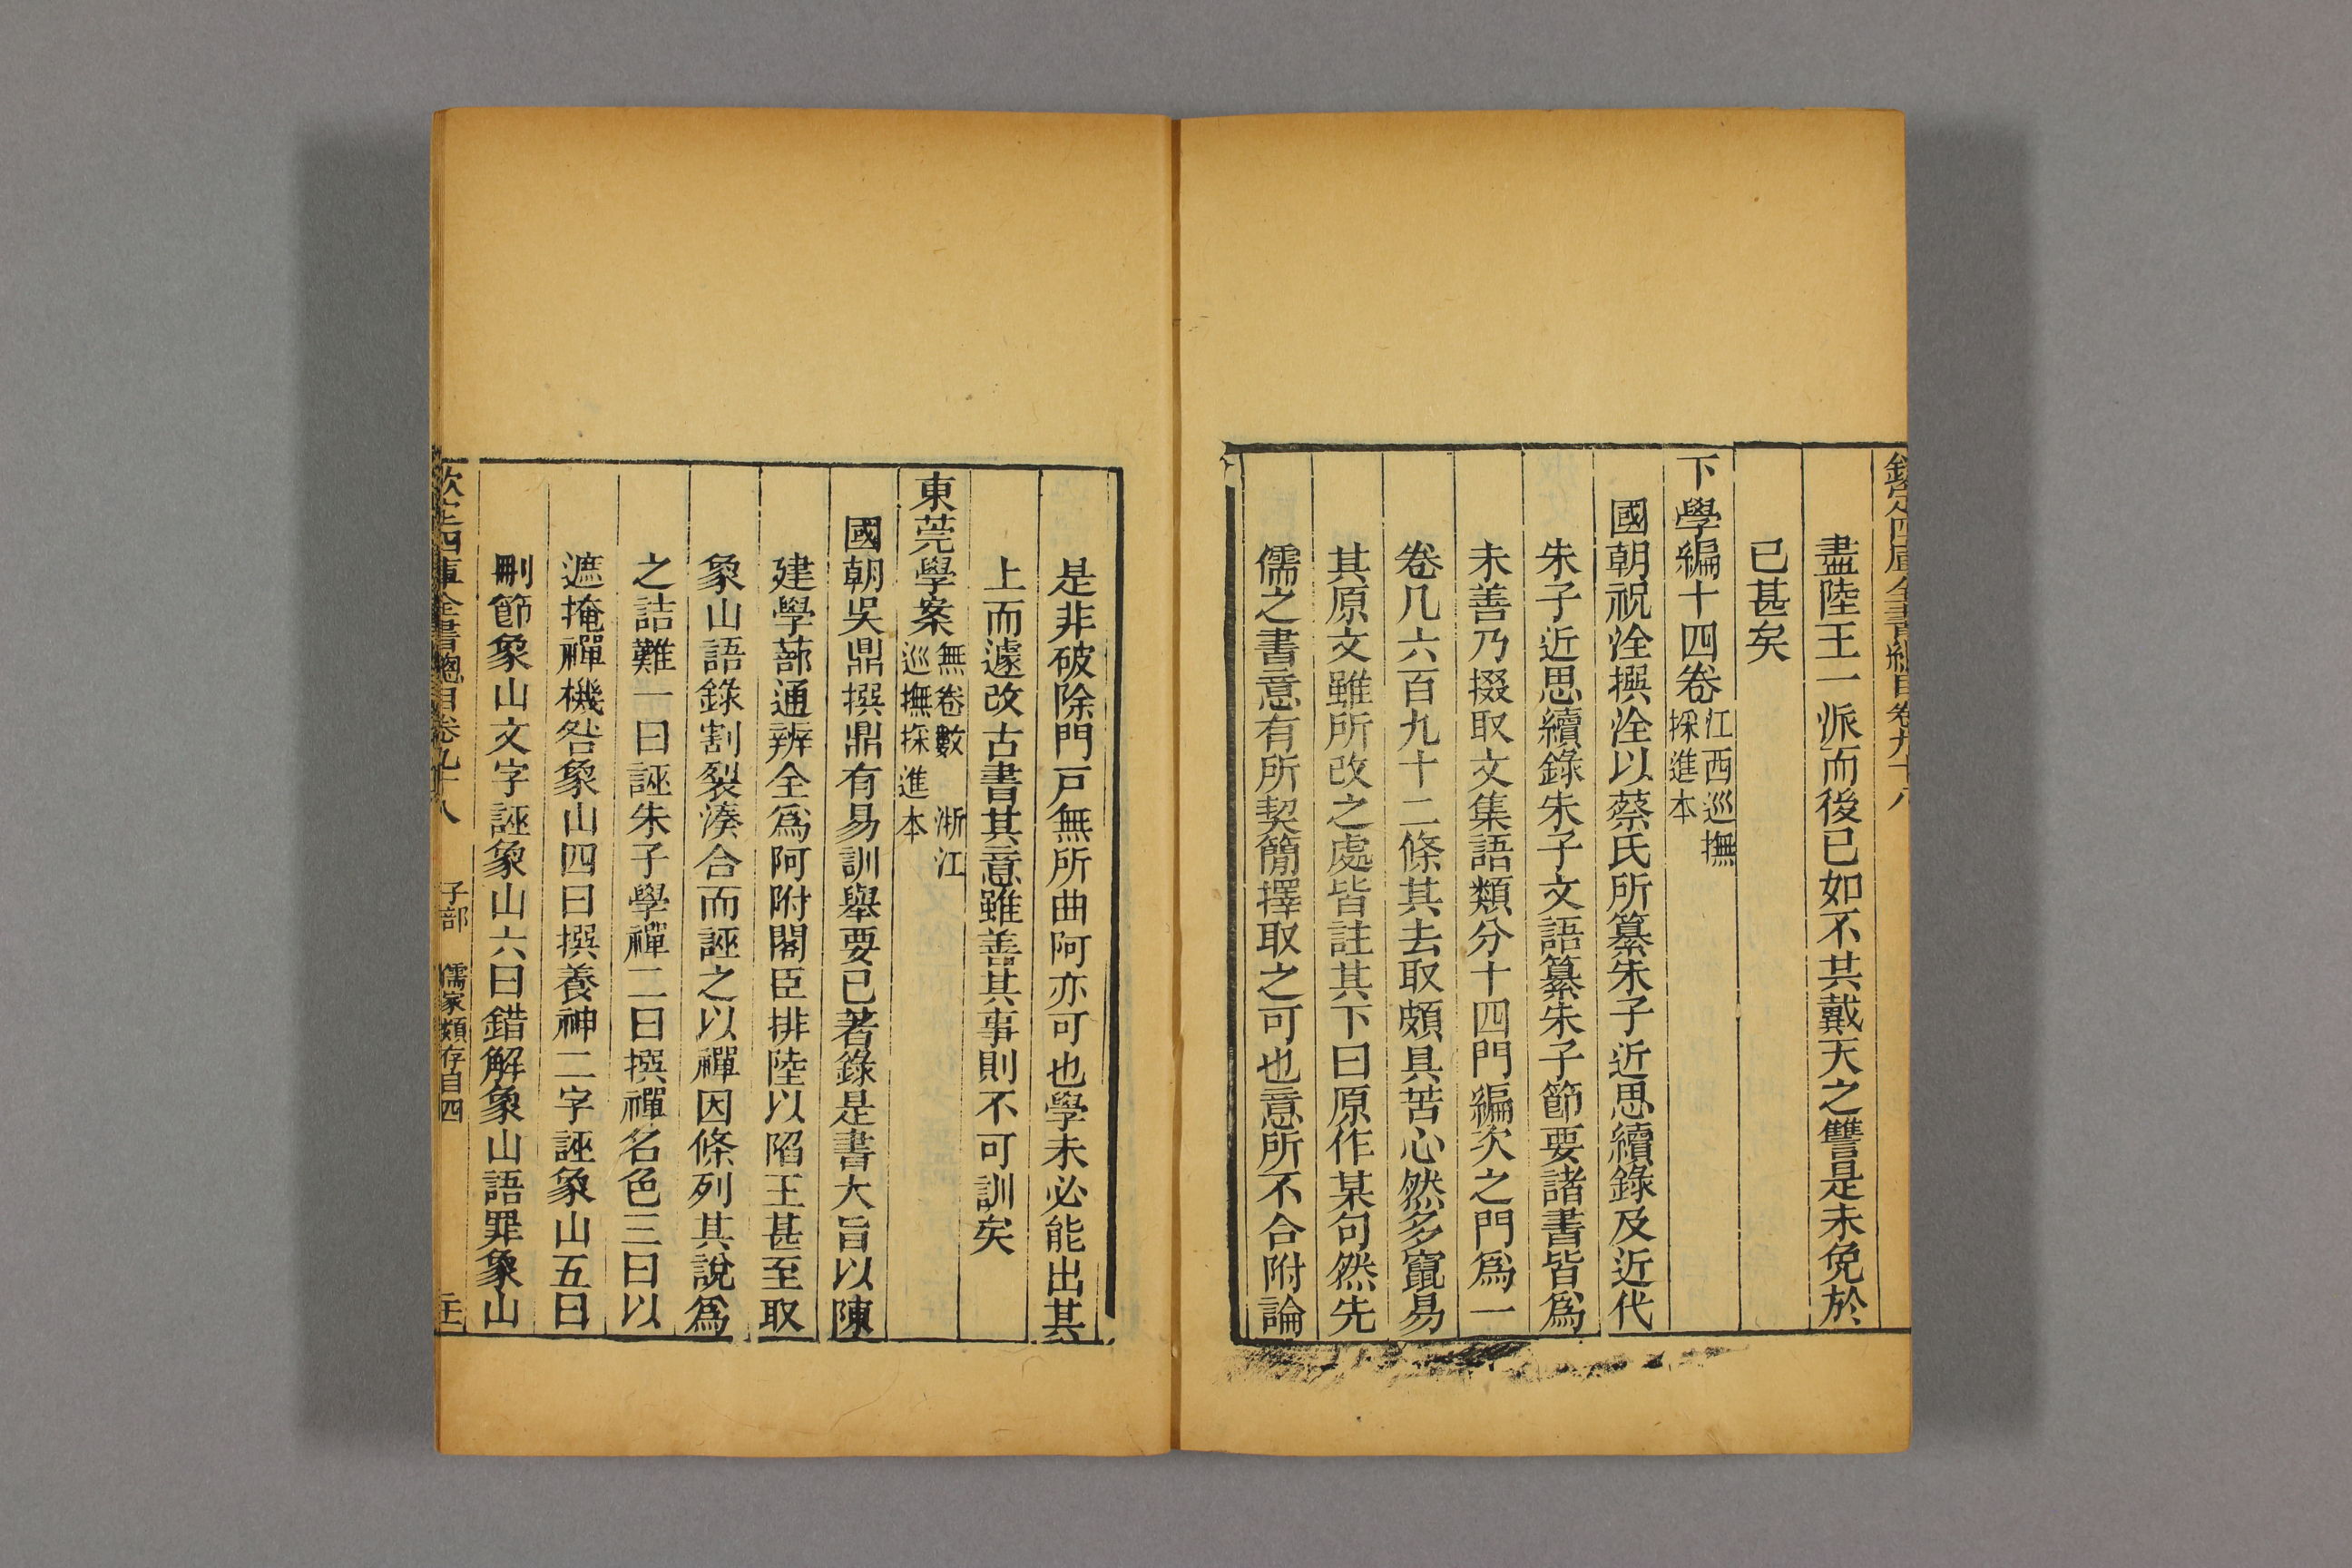 欽定四庫全書總目卷九十八
盡陸王一派而後已如不共戴天之讐是未免於
已甚矣
下學編十四卷江西巡撫採進本
國朝祝洤撰洤以蔡氏所纂朱子近思續錄及近代
朱子近思續錄朱子文語纂朱子節要諸書皆爲
未善乃掇取文集語類分十四門編次之門爲一
卷凡六百九十二條其去取頗具苦心然多竄易
其原文雖所改之處皆註其下曰原作某句然先
儒之書意有所契簡擇取之可也意所不合附論
是非破除門戸無所曲阿亦可也學未必能出其
上而遽改古書其意雖善其事則不可訓矣
東莞學案無卷數　浙江巡撫採進本
國朝吳鼎撰鼎有易訓舉要已著錄是書大旨以陳
建學蔀通辨全爲阿附閣臣排陸以陷王甚至取
象山語錄割裂湊合而誣之以禪因條列其說爲
之詰難一曰誣朱子學禪二曰撰禪名色三曰以
遮掩禪機咎象山四曰撰養神二字誣象山五曰
刪節象山文字誣象山六曰錯解象山語罪象山
欽定四庫全書總目卷九十八　子部　儒家類存目四